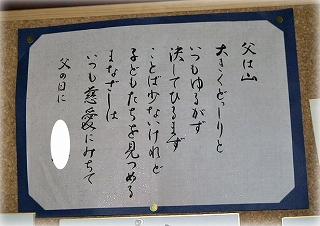 父は山
大きくどっしりと
いつもゆるがず
決してひるまず
ことば少ないけれど
子どもたちを見つめる
まなざしは
いつも慈愛にみちて
父の日に